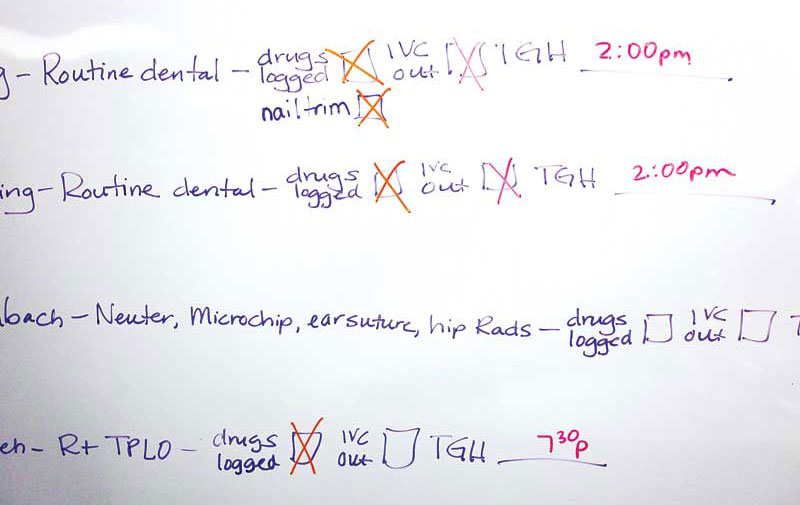 g - Routine dental - drugs logged IVC out TGH 2:00pm
nail trim
ing - Routine dental - drugs logged IVC out TGH 2:00pm
bach - Neuter, Microchip, ear suture, hip Rads - drugs logged IVC out T
eh - R+ TPLO - drugs logged IVC out TGH 730p